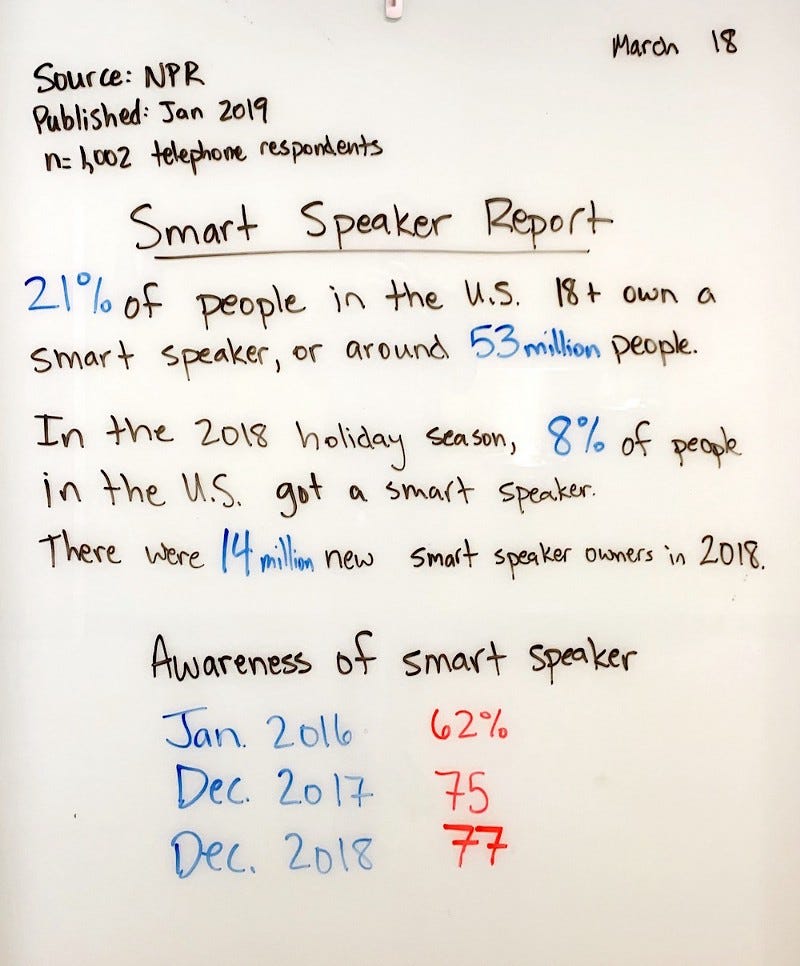 March 18
Source: NPR
Published: Jan 2019
n=1,002 telephone respondents
Smart Speaker Report
21% of people in the U.S. 18+ own a
smart speaker, or around 53 million people.
In the 2018 holiday season, 8% of people
in the U.S. got a smart speaker.
There were 14 million new smart speaker owners in 2018.
Awareness of smart speaker
Jan. 2016 62%
Dec. 2017 75
Dec. 2018 77